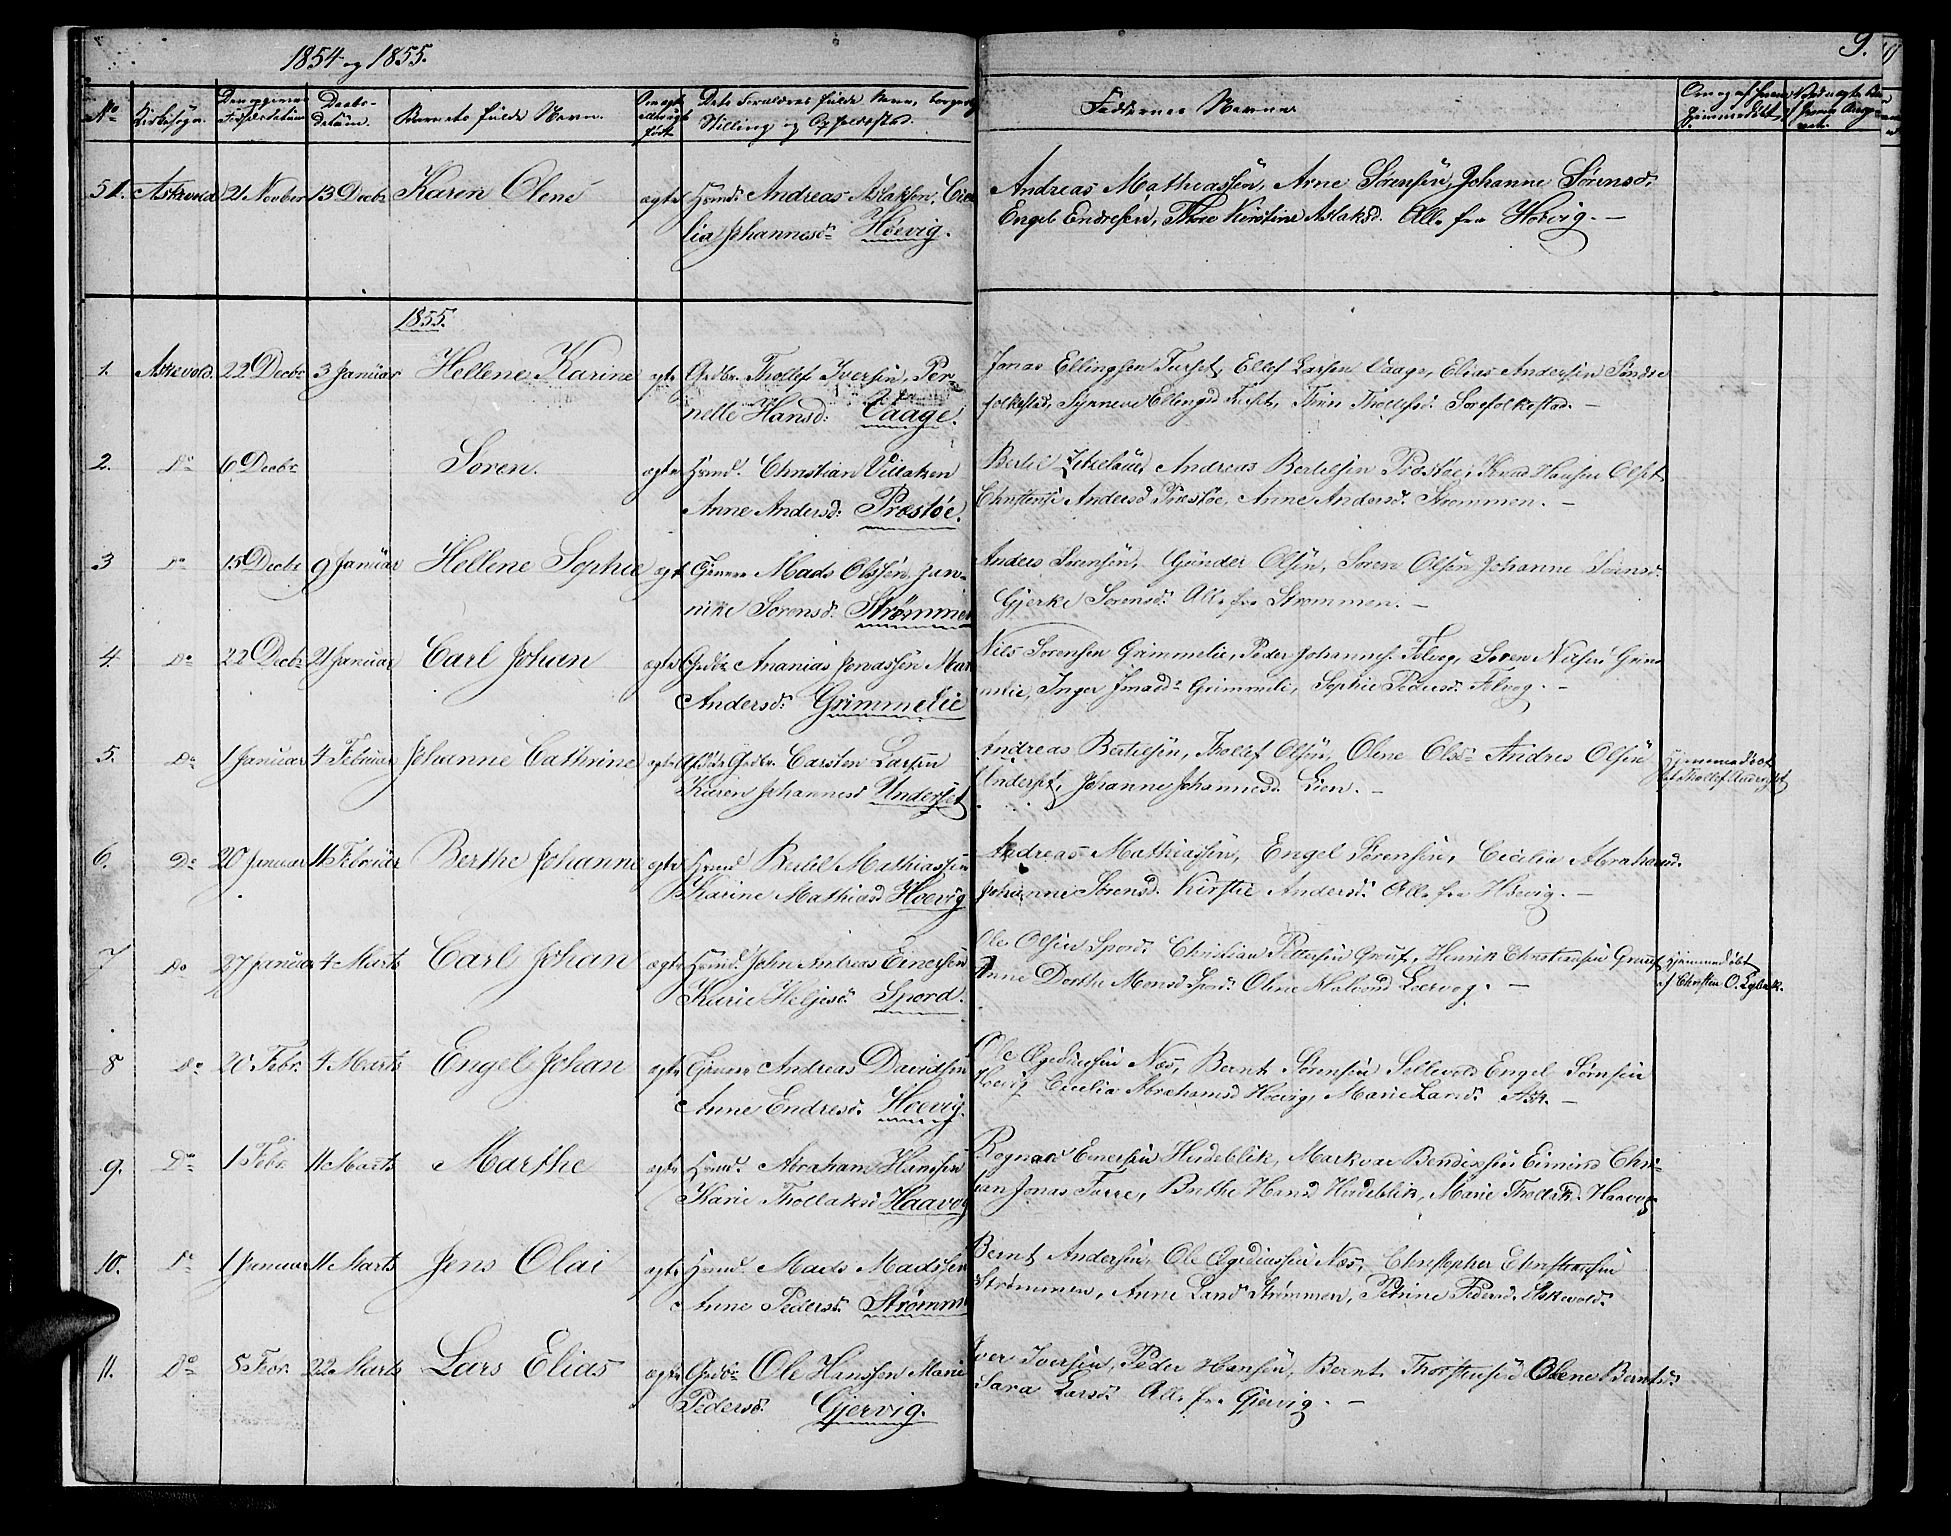 1854 og 1855.
9.
No Kirkesogn. Den nyfødtes Fødselsdatum Daabs-datum. Barnets fulde Navn. Om ægte eller uægte født Dets Forældres fulde Navn, borgerlig Stilling og Opholdssted. Faddernes Navne Om og af hvem hjemmedøbt
51. Askevold 21 Novber 13 Decbr Karen Olene ægte Huusmd: Andreas Aslaksen, Cici-
lia Johannesdr Høevig.
Andreas Mathiassen, Arne Sørensen, Johanne Sørensd:
Engel Endresen, Thrine Kirstine Aslaksd. Alle fra Høevig. —
1855.
1. Askevold. 22 Decbr 3 Januar Hellene Karine ægte Grdbr. Thollef Iversen, Per-
nelle Hansd: Vaage.
Jonas Ellingsen Tueset, Ellef Larsen Vaage, Elias Andersen Søndre
folkestad, Synneve Ellingsd Tueset, Thrin Thollefsd. Sørefolkestad. —
2. Do 6 Decbr Søren. ægte Huusmd. Christian Villaken
Anne Andersd: Præstøe.
Bertel Andreas Bertelsen Præstøe, Hansen Olset
Christense Andersd Præstøe, Anne Andersd. Strømmen. —
3 Do 15 Decbr 9 Januar Hellene Sophie ægte Mads Olssen, Jan-
nike Sørensd. Strømmen
Anders Sørensen, Gunder Olsen, Søren Olsen Johanne Sørensd.
Gjerke Sørensd: Alle fra Strømmen. —
4. Do 22 Decbr 21 Januar Carl Johan ægte Grdbr Ananias Jonassen Mar
Andersd: Grimmelie
Nils Sørensen Grimmelie, Peder Johannes. Folvog, Søren Nilsen Grim
melie, Inger Jonasd: Grimmeli, Sophie Pedersd. Folvog. —
5. Do 1 Januar 4 Februar Johanne Cathrine ægte Grdbr. Carsten Larsen
Karen Johannesd Underset
Andreas Bertelsen, Thollef Olsen, Olene Olsdr Andreas Olsen
Underset, Johanne Johannesd. Lien. —
hjemmedøbt
af Thollef Underset
6. Do 20 Januar 11 Februar Berthe Johanne ægte Huusmd Bertel Mathiassen
Karine Mathiasd Høevig
Andreas Mathiassen, Engel Sørensen, Cicilia Abrahamsd.
Johanne Sørensd. Kirstie Andersd. Alle fra Høevig. —
7 Do 27 Januar 4 Marts Carl Johan ægte Huusmd. John Andreas Einersen
Karie Heljesd. Spord.
Ole Olsen Spord. Christian Pettersen Gruuf, Henrik Christensen Gruuf
Anne Dorthe Monsd Spord: Oline Lervog. —
hjemmedøbt
af Christen O.
8 Do 20 Febr. 4 Marts Engel Johan ægte Andreas Davidsen
Anne Endresd. Høevig.
Ole Øgediussen Næs, Bernt Sørensen Sellevold Engel Sørnsen
Høevig Cecilia Abrahamsd Høevig, Marie Larsd. Ask. —
9. Do 1 Febr. 11 Marts Marthe ægte Huusmd. Abraham Hanssen
Karie Thollaksd Haavog
Rognald Einersen Hudeblik, Markvar Bendixsen Chri-
tian Jonas Berthe Hansd Hudeblik, Marie Thollaksd. Haavog
10. Do 1 Januar 11 Marts Jens Olai ægte Huusmd. Mads Madssen
Anne Pedersd. Strømme
Bernt Andersen, Ole Øgediussen Næs, Christopher Christensen
Strømmen, Anne Larsd Strømmen, Petrine Pedersd. Askevold.
11. Do 5 Febr. 22 Marts Lars Elias ægte Grdbr Ole Hanssen Marie
Pedersd. Gjervig.
Iver Iversen, Peder Hansen, Bernt Thorstensen Olene Berntsd:
Sara Larsd. Alle fra Gjervig. —